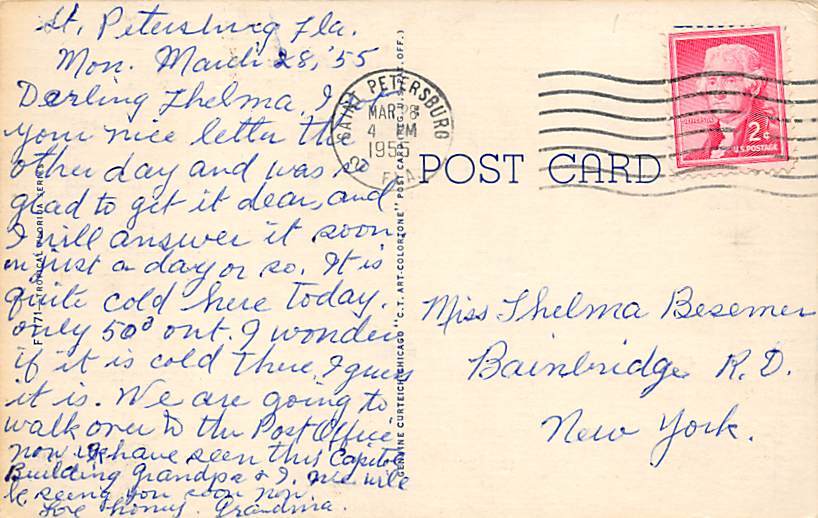 St. Petersburg Fla.
Mon. March 28, '55
Darling Thelma, I got
your nice letter the
other day and was so
glad to get it dear, and
I will answer it soon,
in just a day or so. It is
quite cold here today.
only 50° out. I wonder
if it is cold there, I guess
it is. We are going to
walk over to the Post Office
now. We have seen this Capitol
Building Grandpa & I. we will
be seeing you soon now.
Love honey. Grandma.
SAINT PETERSBURG
MAR 28
4 PM
1955
FLA.
2¢
U.S. POSTAGE
POST CARD
Miss Thelma Besemer
Bainbridge R. D.
New York.
GENUINE CURTEICH-CHICAGO "C.T. ART-COLORTONE" POST CARD (REG. U.S. PAT. OFF.)
TROPICAL FLORIDA SERIES